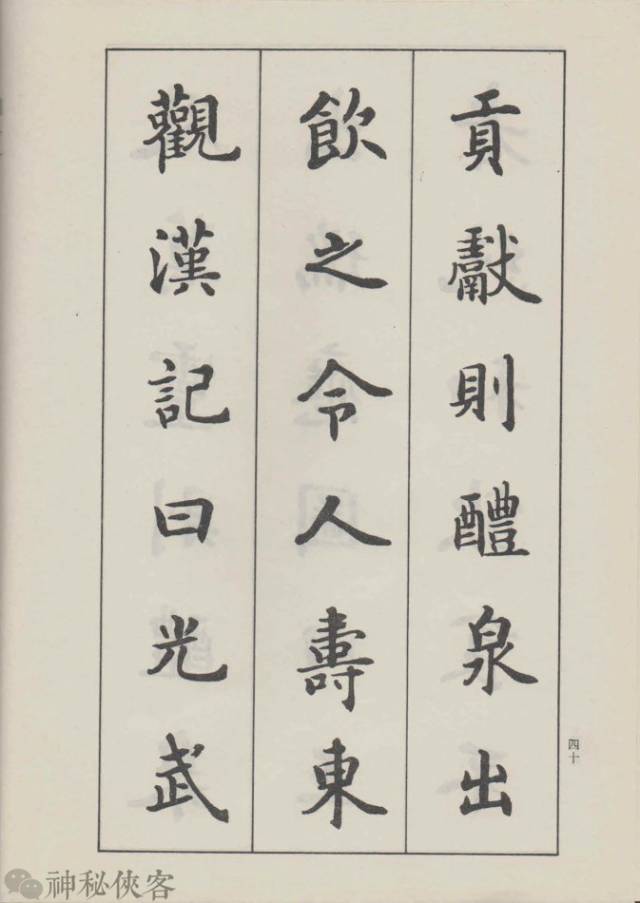 貢獻則醴泉出
飲之令人壽東
觀漢記曰光武
四十
神秘俠客